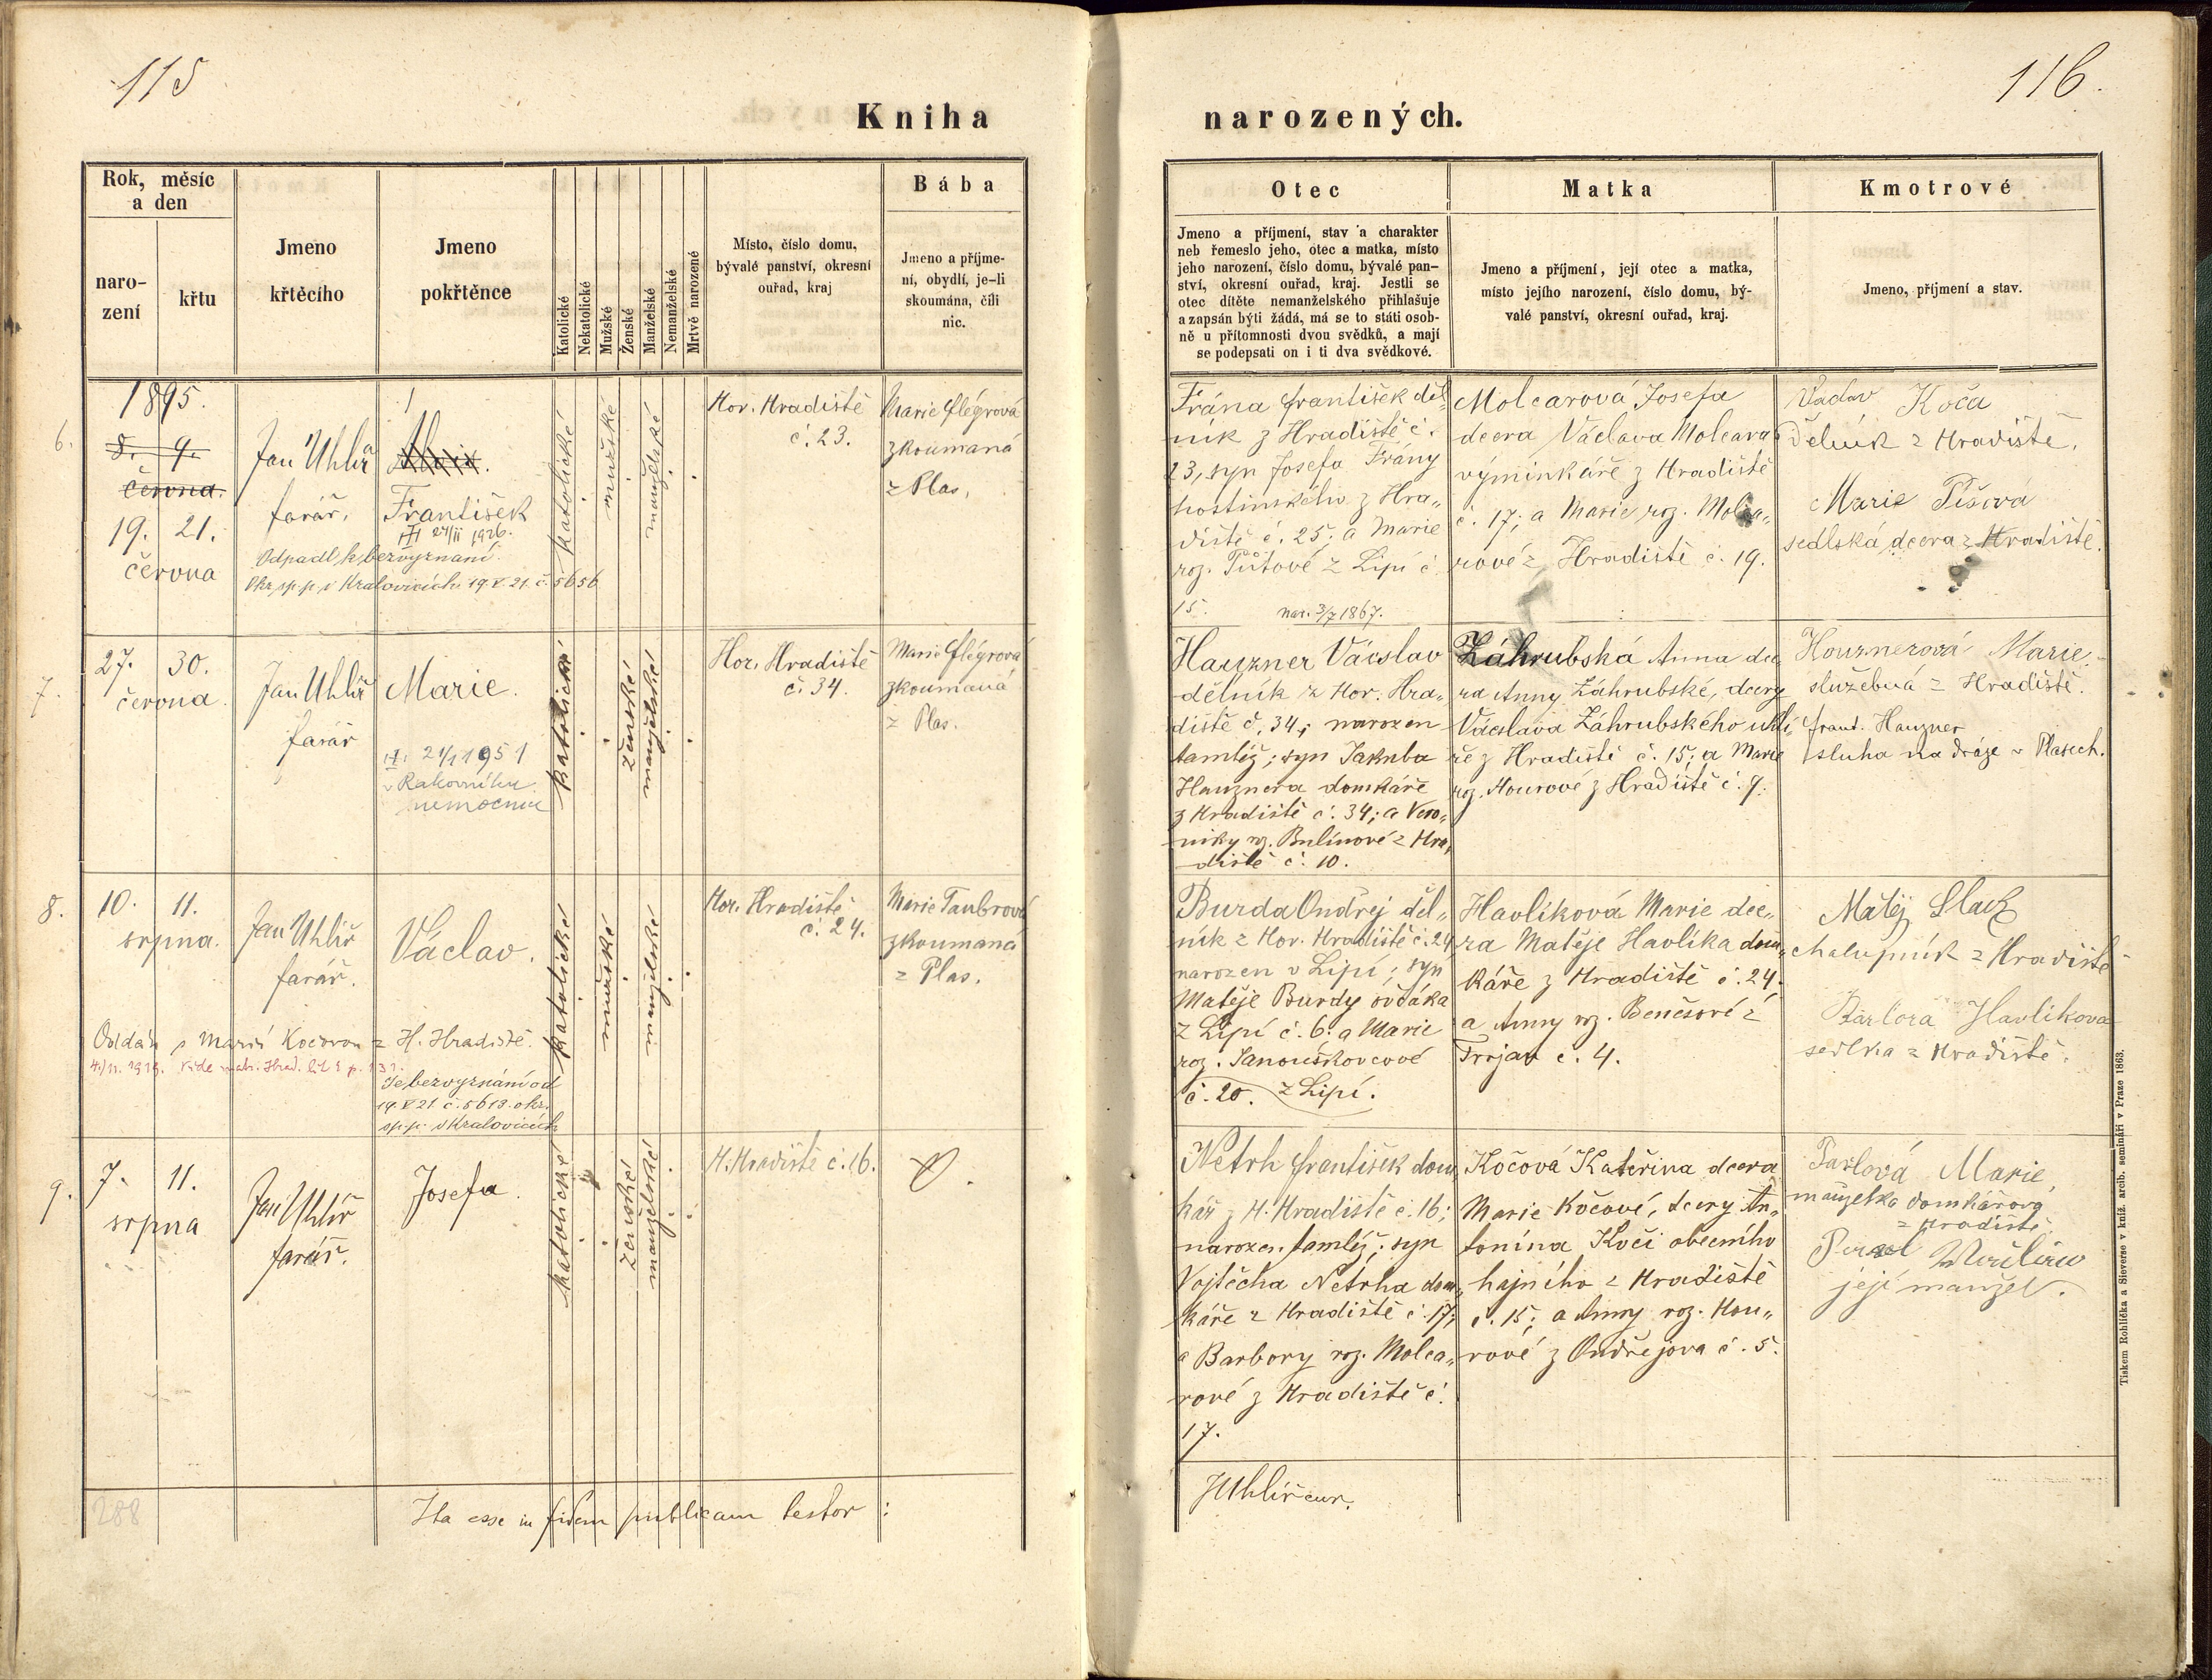 115
Kniha
Rok, měsíc
a den
naro-
zení
křtu
Jmeno
křtěcího
Jmeno
pokřtěnce
Katolické
Nekatolické
Mužské
Ženské
Manželské
Nemanželské
Mrtvě narozené
Místo, číslo domu,
bývalé panství, okresní
ouřad, kraj
Bába
Jmeno a příjme-
ní, obydlí, je-li
skoumána, čili
nic.
6.
1895.
8. 9.
června.
19. 21.
června
Jan Uhlíř
farář.
František
24/II 1926.
Odpadl k bezvyznaní
Okr. sp. p. v Kralovicích 19.V.21. č. 5656
katolické
mužské
manželské
Hor. Hradiště
č. 23.
Marie Flégrová
zkoumaná
z Plas.
7.
27. 30.
června.
Jan Uhlíř
farář
Marie.
21/1 1951
v Rakovníku
nemocnice
katolické
ženské
manželské
Hor. Hradiště
č. 34.
Marie Flégrová
zkoumaná
z Plas.
8.
10. 11.
srpna.
Jan Uhlíř
farář.
Václav.
Oddán s Marií Kočovou z H. Hradiště.
Je bezvyznání od
19.V.21. č. 5613. okr.
sp. p. v Kralovicích
katolické
mužské
manželské
Hor. Hradiště
č. 24.
Marie Taubrová
zkoumaná
z Plas.
9.
7. 11.
srpna
Jan Uhlíř
farář.
Josefa.
katolické
ženské
manželské
H. Hradiště č. 16.
288
Ita esse in fidem publicam testor :
116.
narozených.
Otec
Jmeno a příjmení, stav a charakter
neb řemeslo jeho, otec a matka, místo
jeho narození, číslo domu, bývalé pan-
ství, okresní ouřad, kraj. Jestli se
otec dítěte nemanželského přihlašuje
a zapsán býti žádá, má se to státi osob-
ně u přítomnosti dvou svědků, a mají
se podepsati on i ti dva svědkové.
Matka
Jmeno a příjmení, její otec a matka,
místo jejího narození, číslo domu, bý-
valé panství, okresní ouřad, kraj.
Kmotrové
Jmeno, příjmení a stav.
Frána František děl„
ník z Hradiště č.
23, syn Josefa Frány
hostinského z Hra„
diště č. 25; a Marie
roz. Půtové z Lipí č.
15. nar. 3/7 1867.
Molcarová Josefa
dcera Václava Molcara
výminkáře z Hradiště
č. 17; a Marie roz. Molca„
rové z Hradiště č. 19.
Václav Koča
dělník z Hradiště.
Marie
sedlská dcera z Hradiště.
Hauzner Václav
dělník z Hor. Hra„
diště č. 34; narozen
tamtéž; syn Jakuba
Hauznera domkáře
z Hradiště č. 34; a Vero„
niky roz. Bulínové z Hra„
diště č. 10.
Záhrubská Anna dce
ra Anny Záhrubské, dcery
Václava Záhrubského uhlí„
ře z Hradiště č. 15; a Marie
roz. Hourové z Hradiště č. 9.
Houznerová Marie
služebná z Hradiště.
Frant. Hauzner
sluha na dráze v Plasech.
Burda Ondřej děl„
ník z Hor. Hradiště č. 24
narozen v Lipí; syn
Matěje Burdy ovčáka
z Lipí č. 6; a Marie
roz. Janouškovcové
č. 20. z Lipí.
Havlíková Marie dce„
ra Matěje Havlíka dom„
káře z Hradiště č. 24.
a Anny roz. Benešové z
Trojan č. 4.
Matěj Slach
chalupník z Hradiště
Barbora Havlíkova
sedlka z Hradiště.
Netrh František dom
kář z H. Hradiště č. 16;
narozen tamtéž; syn
Vojtěcha Netrha dom„
káře z Hradiště č. 17;
a Barbory roz. Molca„
rové z Hradiště č.
17.
Kočová Kateřina dcera
Marie Kočové, dcery An„
tonína Koči obecního
hajného z Hradiště
č. 15; a Anny roz. Hou„
rové z Ondřejova č. 5.
Pavlová Marie,
manželka domkářova
z Hradiště
její manžel.
JUhlíř cur.
Tiskem Rohlíčka a Sieverse v kníž. arcib. semináři v Praze 1863.